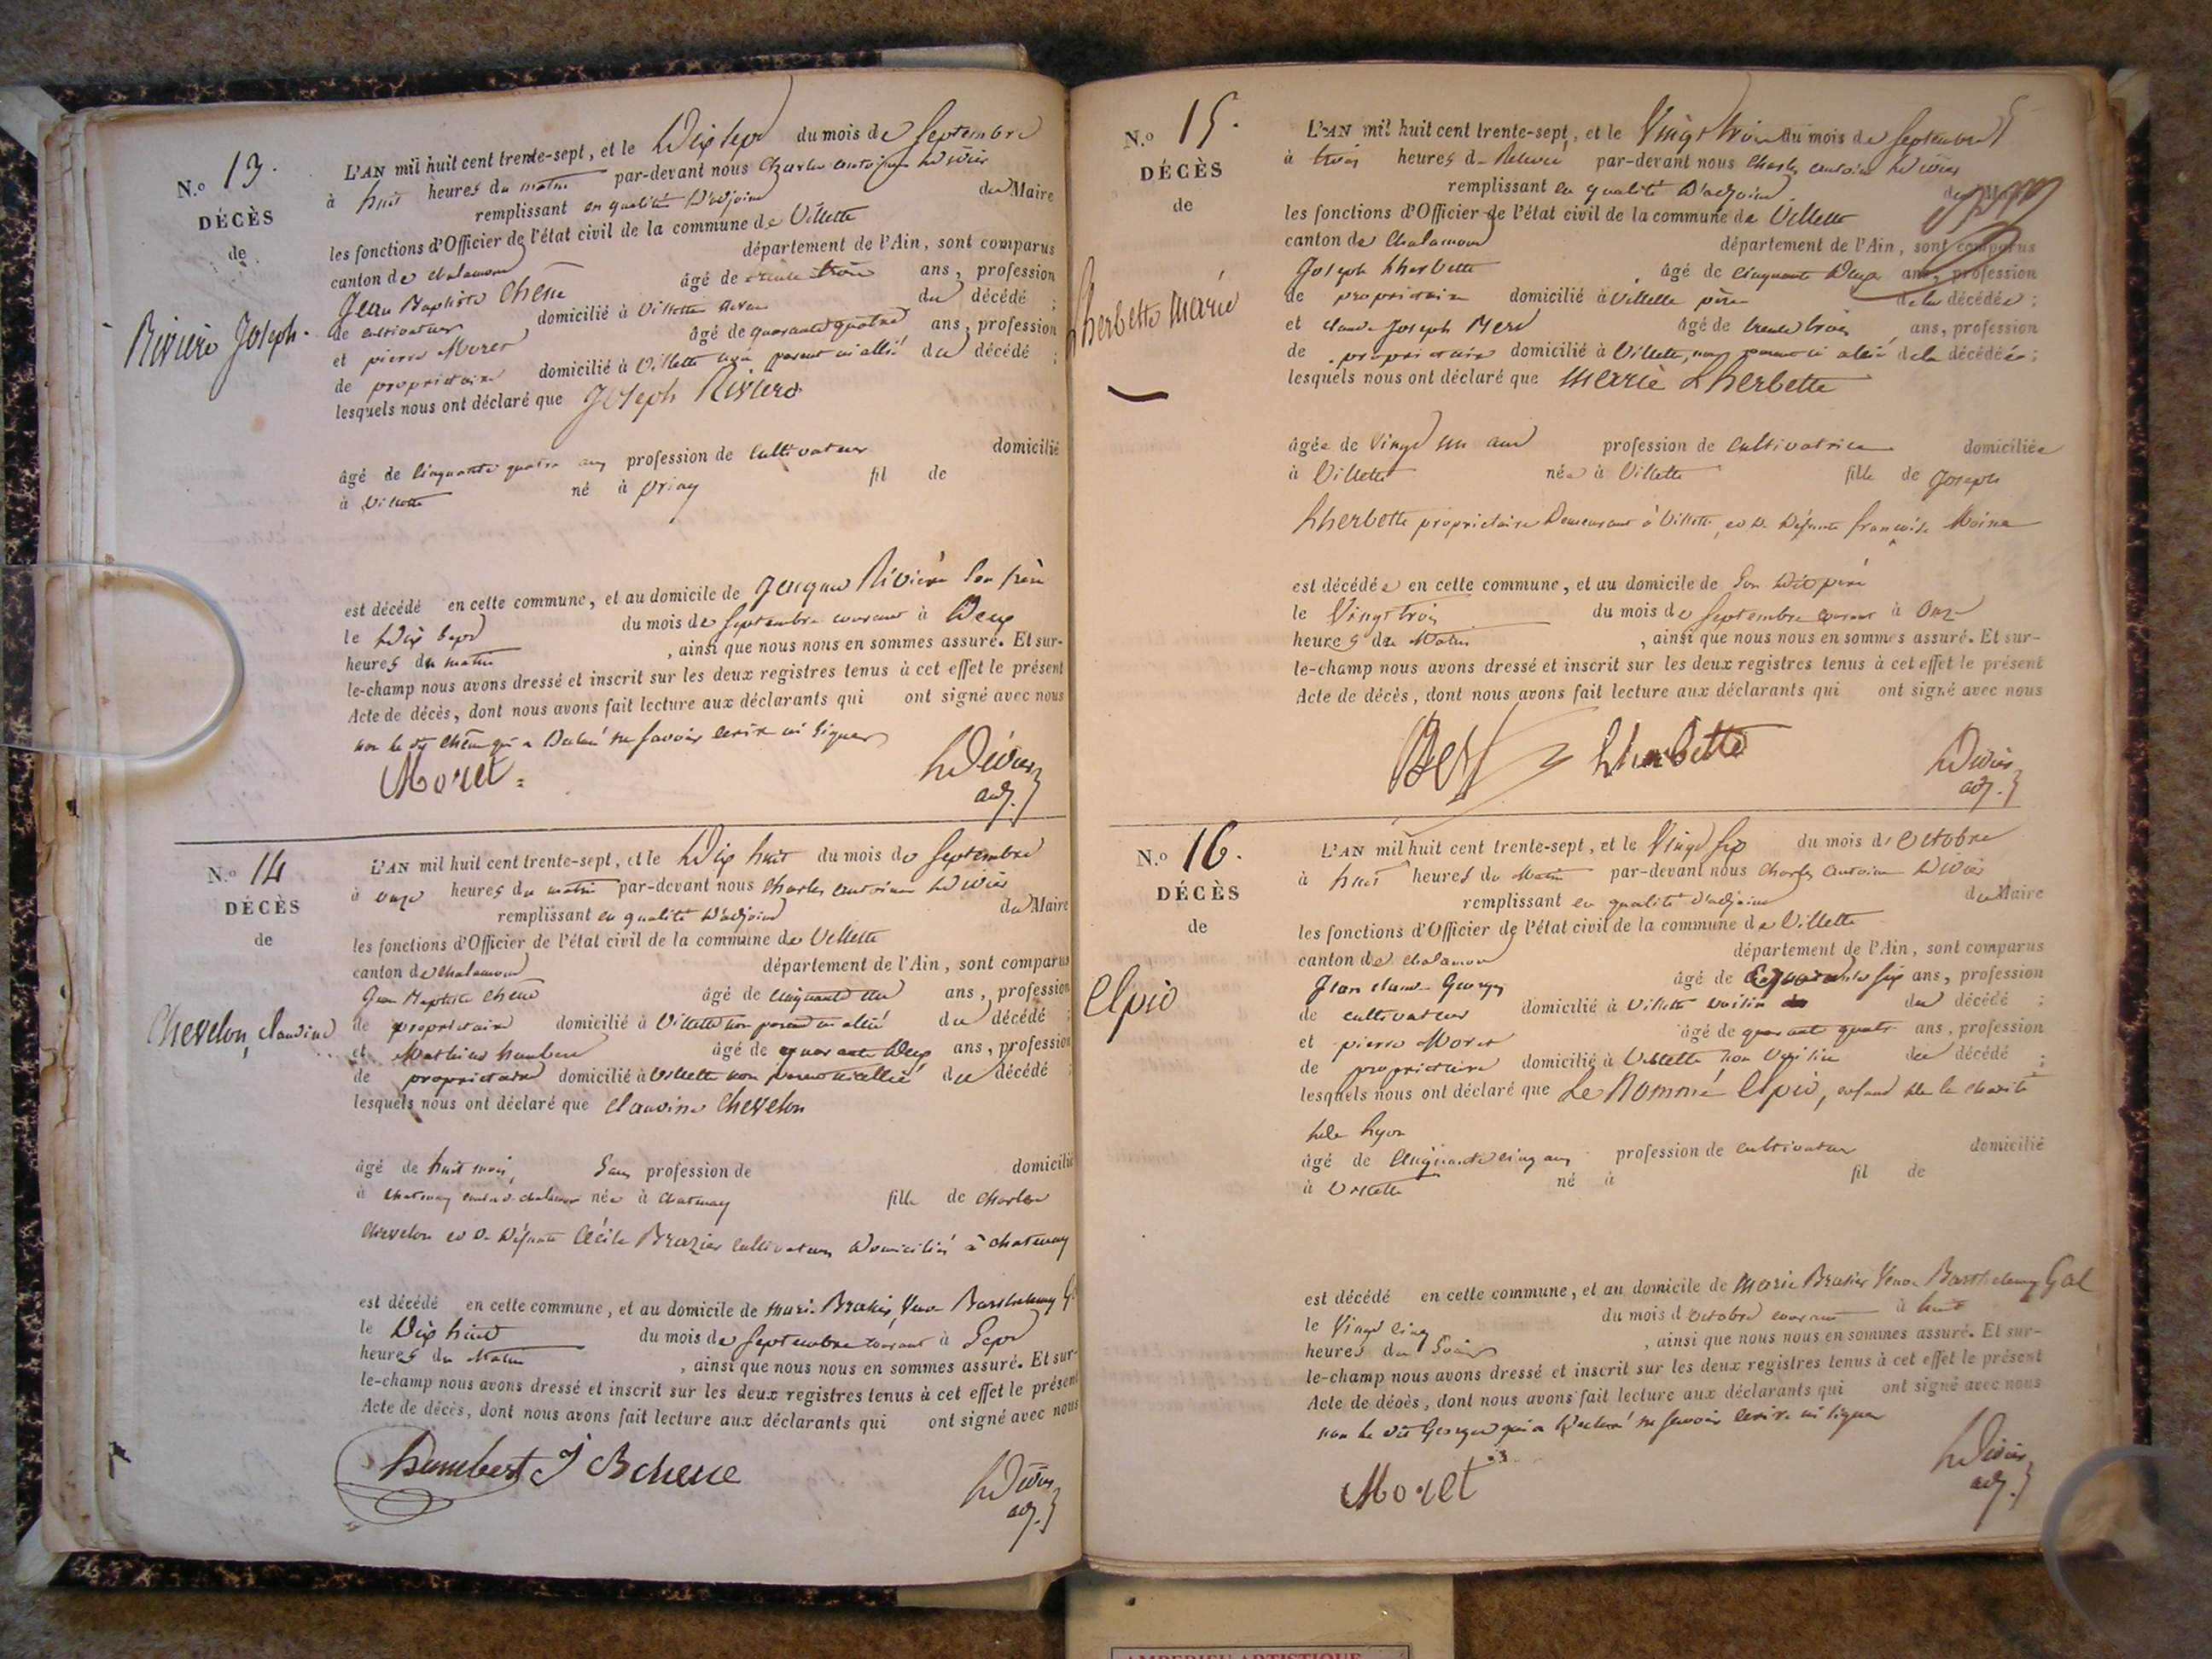 N.o 13.
DÉCÈS
de
Rivière Joseph.
L'AN mil huit cent trente-sept, et le Dix sept du mois de Septembre
à huit heures du matin par-devant nous Charles antoine
remplissant en qualité D'adjoint du Maire
les fonctions d'Officier de l'état civil de la commune de Villette
canton de chalamont département de l'Ain, sont comparus
Jean Baptiste Chêne âgé de trente trois ans, profession
de cultivateur domicilié à Villette du décédé ;
et pierre Moret âgé de quarante quatre ans, profession
de propriétaire domicilié à Villette non parent ni allié du décédé ;
lesquels nous ont déclaré que Joseph Rivière
âgé de Cinquante quatre ans profession de Cultivateur domicilié
à Villette né à priay fil de
est décédé en cette commune, et au domicile de Jacques Rivière Son frère
le Dix Sept du mois de Septembre courant à Deux
heures du matin , ainsi que nous nous en sommes assuré. Et sur-
le-champ nous avons dressé et inscrit sur les deux registres tenus à cet effet le présent
Acte de décès, dont nous avons fait lecture aux déclarants qui ont signé avec nous
non le dit Chêne qui a Déclaré ne Savoir écrire ni Signer
Moret
adj.
N.o 14
DÉCÈS
de
Chevelon, claudine
L'AN mil huit cent trente-sept, et le Dix huit du mois de Septembre
à onze heures du matin par-devant nous Charles antoine
remplissant en qualité D'adjoint du Maire
les fonctions d'Officier de l'état civil de la commune de Villette
canton de chalamont département de l'Ain, sont comparus
Jean Baptiste Chêne âgé de Cinquante un ans, profession
de propriétaire domicilié à Villette non parent ni allié du décédé ;
et Mathieu humbert âgé de quarante Deux ans, profession
de propriétaire domicilié à Villette non parent ni allié du décédé ;
lesquels nous ont déclaré que claudine Chevelon
âgé de huit mois, Sans profession de domicilié
à chatenay canton de chalamont née à chatenay fille de Charles
Chevelon et De Défunte Cécile Brazier Cultivateurs Domiciliés à chatenay
est décédé en cette commune, et au domicile de Marie Brasier, Veuve Barthelemy
le Dix huit du mois de Septembre courant à Sept
heures du Matin , ainsi que nous nous en sommes assuré. Et sur-
le-champ nous avons dressé et inscrit sur les deux registres tenus à cet effet le présent
Acte de décès, dont nous avons fait lecture aux déclarants qui ont signé avec nous
humbert J B chene
adj.
N.o 15.
DÉCÈS
de
Lherbette Marie
L'AN mil huit cent trente-sept, et le Vingt trois du mois de Septembre
à trois heures de Relevée par-devant nous Charles antoine
remplissant en qualité D'adjoint du Maire
les fonctions d'Officier de l'état civil de la commune de Villette
canton de Chalamont département de l'Ain, sont comparus
Joseph Lherbette âgé de Cinquante Deux ans, profession
de propriétaire domicilié à Villette père de la décédée ;
et claude Joseph âgé de trente trois ans, profession
de propriétaire domicilié à Villette, non parent ni allié de la décédée ;
lesquels nous ont déclaré que Marie Lherbette
âgée de Vingt un ans profession de Cultivatrice domiciliée
à Villette née à Villette fille de Joseph
Lherbette propriétaire Demeurant à Villette, et De Défunte françoise Moine
est décédée en cette commune, et au domicile de Son Dit père
le Vingt trois du mois de Septembre courant à Onze
heures du Matin , ainsi que nous nous en sommes assuré. Et sur-
le-champ nous avons dressé et inscrit sur les deux registres tenus à cet effet le présent
Acte de décès, dont nous avons fait lecture aux déclarants qui ont signé avec nous
Lherbette
adj.
N.o 16.
DÉCÈS
de
Elpio
L'AN mil huit cent trente-sept, et le Vingt Six du mois d'Octobre
à huit heures du Matin par-devant nous Charles Antoine
remplissant en qualité D'adjoint du Maire
les fonctions d'Officier de l'état civil de la commune de Villette
canton de chalamont département de l'Ain, sont comparus
Jean claude Georges âgé de Six ans, profession
de cultivateur domicilié à Villette voisin du décédé ;
et pierre Moret âgé de quarante quatre ans, profession
de propriétaire domicilié à Villette non Voisin du décédé ;
lesquels nous ont déclaré que Le Nommé Elpio, enfant De la charité
De Lyon
âgé de Cinquante cinq ans profession de cultivateur domicilié
à Villette né à fil de
est décédé en cette commune, et au domicile de Marie Brasier Veuve Barthelemy Gal
le Vingt cinq du mois d'octobre courant à huit
heures du Soir , ainsi que nous nous en sommes assuré. Et sur-
le-champ nous avons dressé et inscrit sur les deux registres tenus à cet effet le présent
Acte de décès, dont nous avons fait lecture aux déclarants qui ont signé avec nous
non le dit Georges qui a Déclaré ne Savoir écrire ni Signer
Moret
adj.